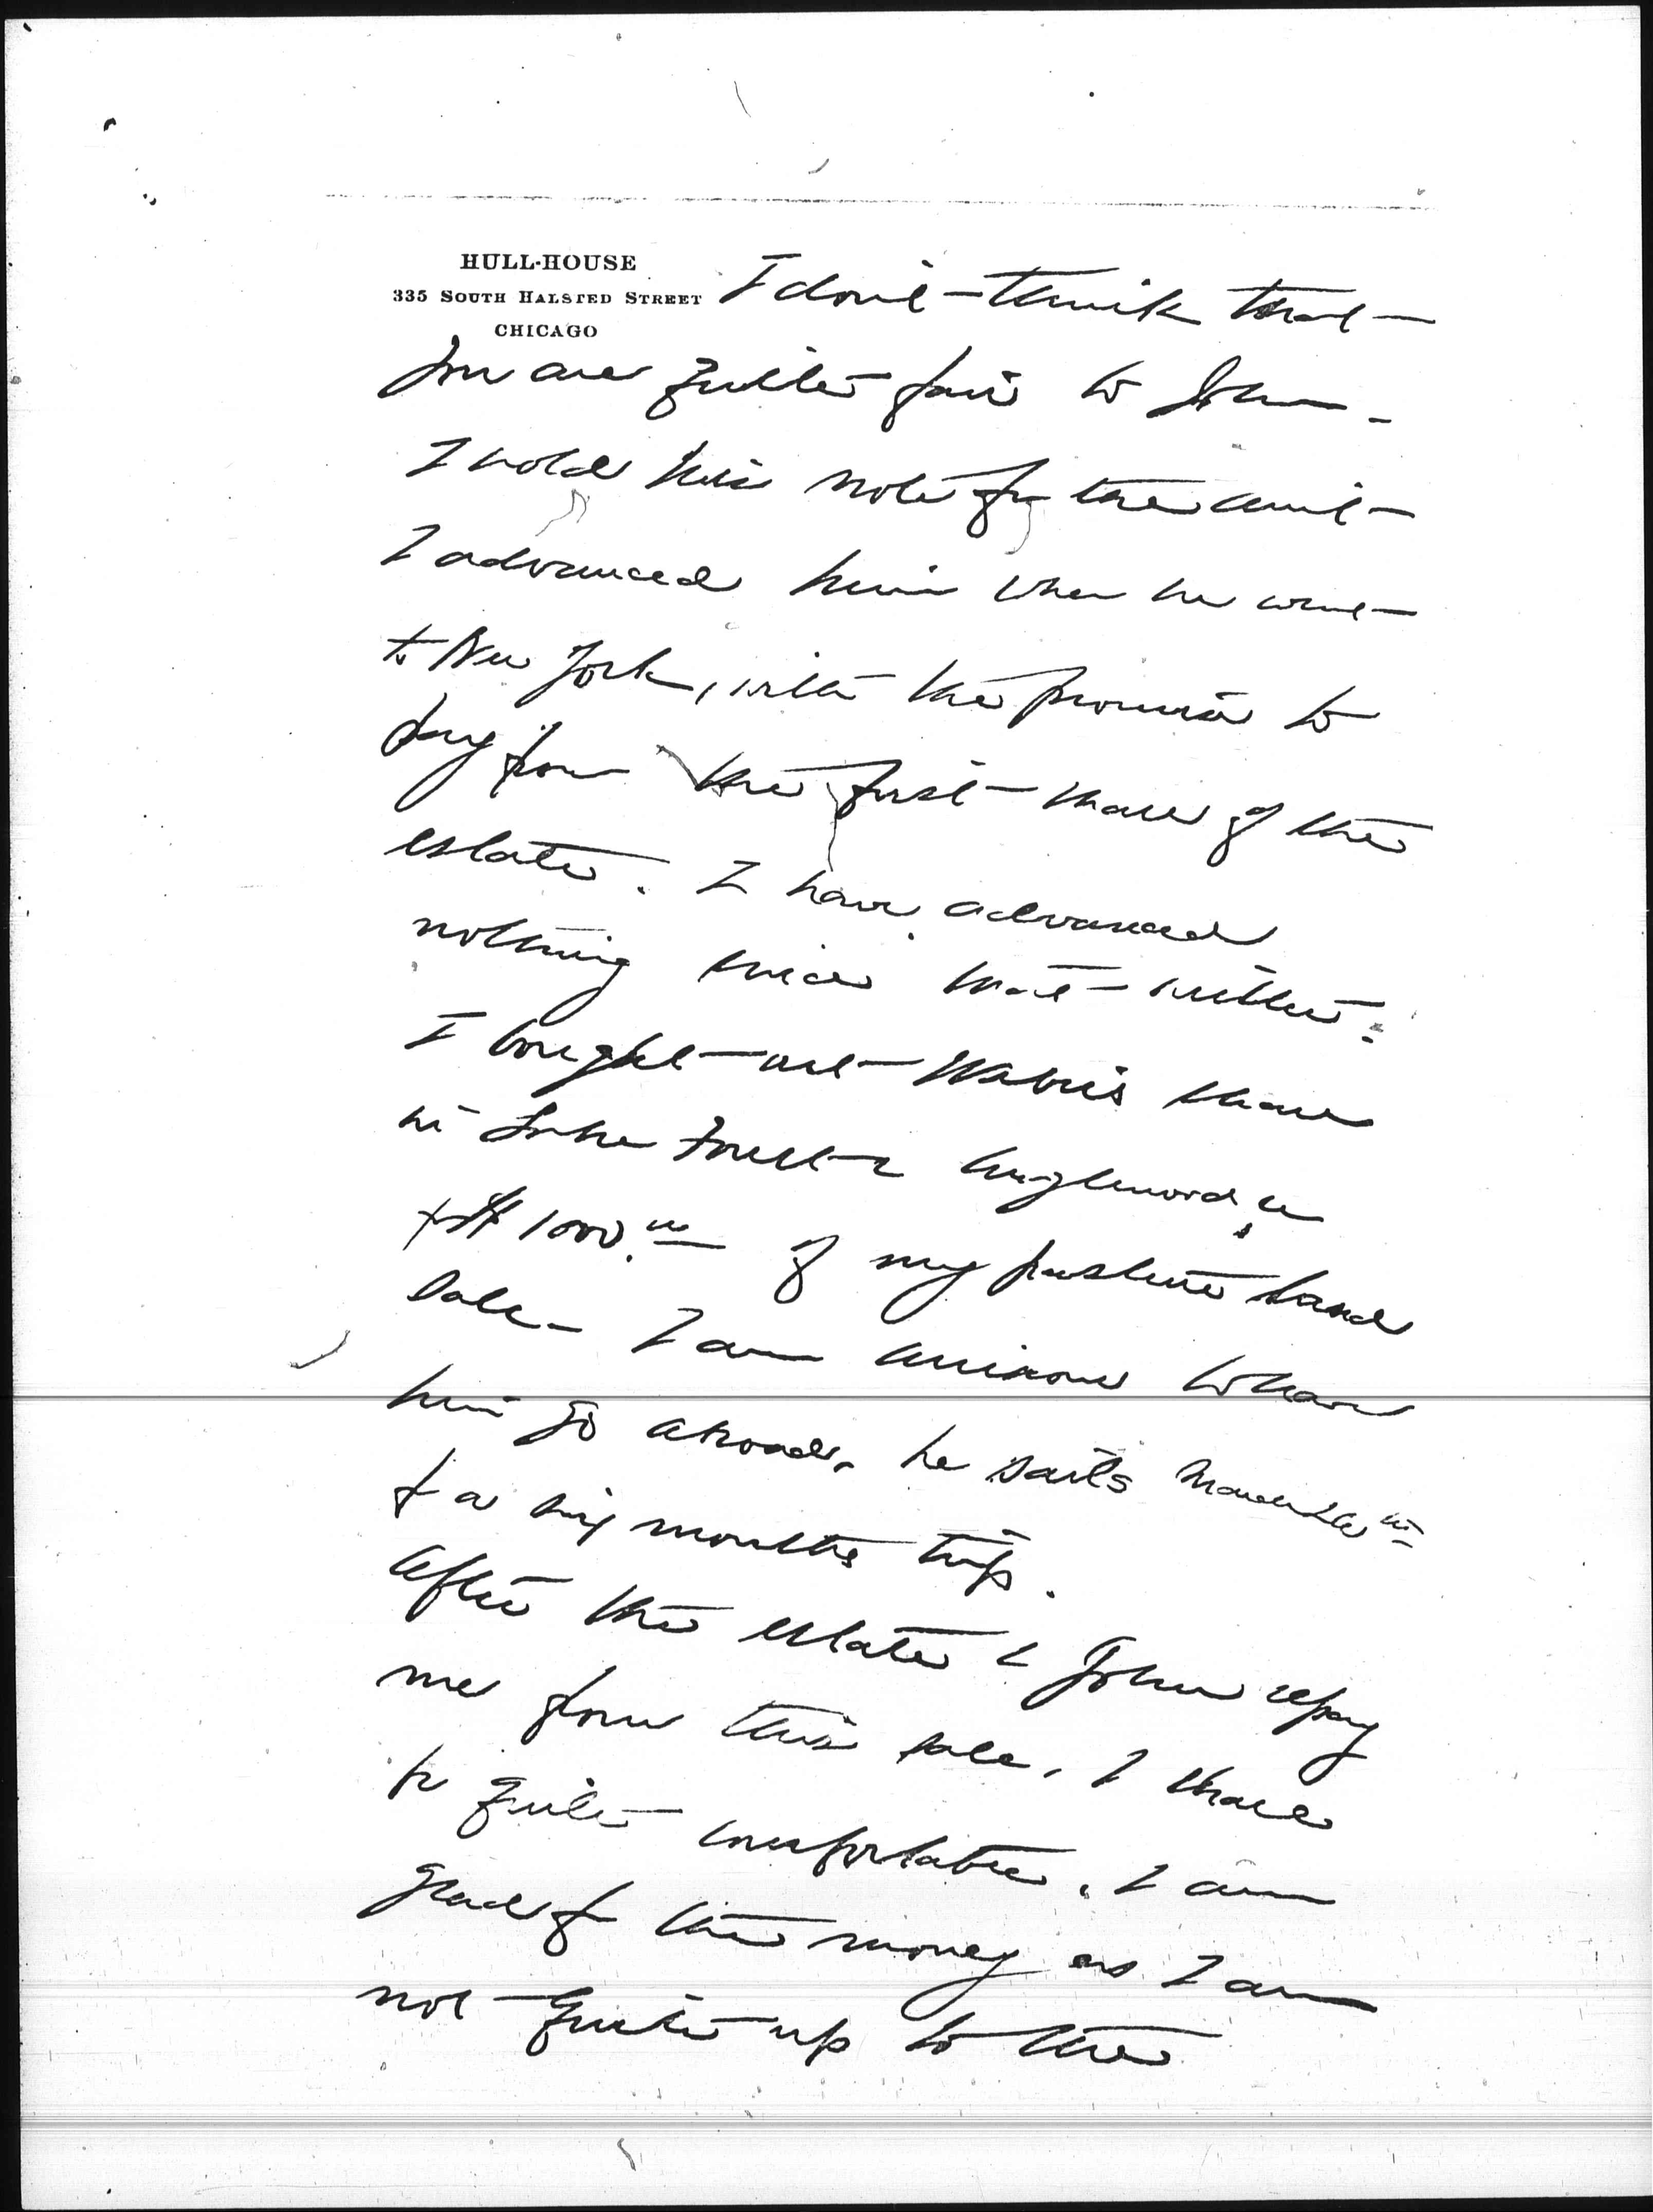 HULL-HOUSE
335 SOUTH HALSTED STREET
CHICAGO
I don't think that
you are quite fair to John -
I hold his note for the am't
I advanced him when he went
to New York, with the promise to
pay from the first share of the
estate. I have advanced
nothing since that written:
I bought out share
in Lake Forest & Englewood,
$1000.00 of my pasture land
Sale - I am anxious to have
him go abroad, he sails March
for a six months trip.
After the estate & John repay
me from this sale, I shall
be quite comfortable. I am
glad of the money as I am
not quite up to the